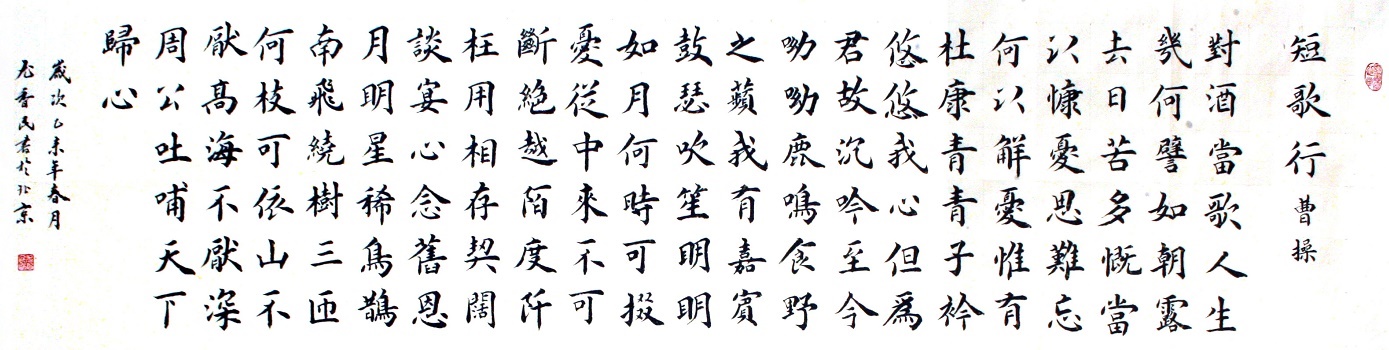 短歌行 曹操
對酒當歌人生
幾何譬如朝露
去日苦多慨當
以慷憂思難忘
何以解憂惟有
杜康青青子衿
悠悠我心但為
君故沉吟至今
呦呦鹿鳴食野
之蘋我有嘉賓
鼓瑟吹笙明明
如月何時可掇
憂從中來不可
斷絕越陌度阡
枉用相存契闊
談宴心念舊恩
月明星稀烏鵲
南飛繞樹三匝
何枝可依山不
厭高海不厭深
周公吐哺天下
歸心
歲次乙未年春月
民書於北京